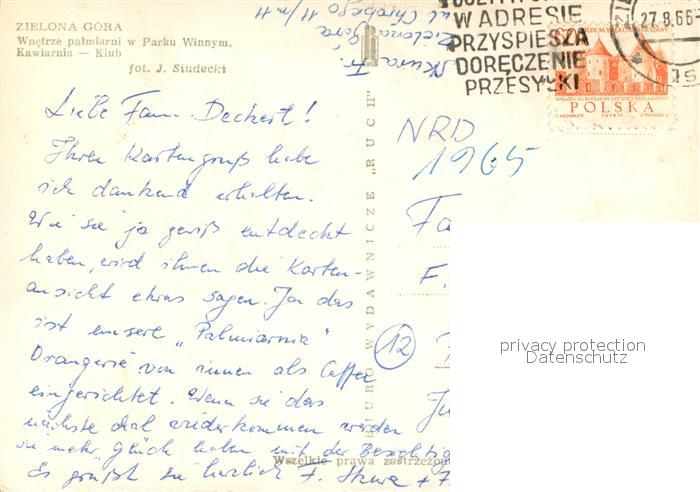 ZIELONA GÓRA
Wnętrze palmiarni w Parku Winnym,
Kawiarnia — Klub
fot. J. Siudecki
Liebe Fam. Deckert!
Ihren Kartengruß habe
ich dankend erhalten.
Wie sie ja gewiß entdeckt
haben, wird ihnen die Karten-
ansicht etwas sagen. Ja das
ist unsere „Palmiarnia"
Orangerie von innen als Caffee
eingerichtet. Wenn sie das
nächste Mal wiederkommen werden
sie mehr Glück haben mit der Besichtig
Es grüßt sie herzlich F. Skura +
Skura Fr.
Zielona Góra
ul. Chrobrego 11/m 4
BIURO WYDAWNICZE „RUCH"
W ADRESIE
PRZYSPIESZA
DORĘCZENIE
PRZESYŁKI
27.8.66
60
POLSKA
NRD
1965
Fa
F.
12
Ju
Wszelkie prawa zastrzeżone
privacy protection
Datenschutz